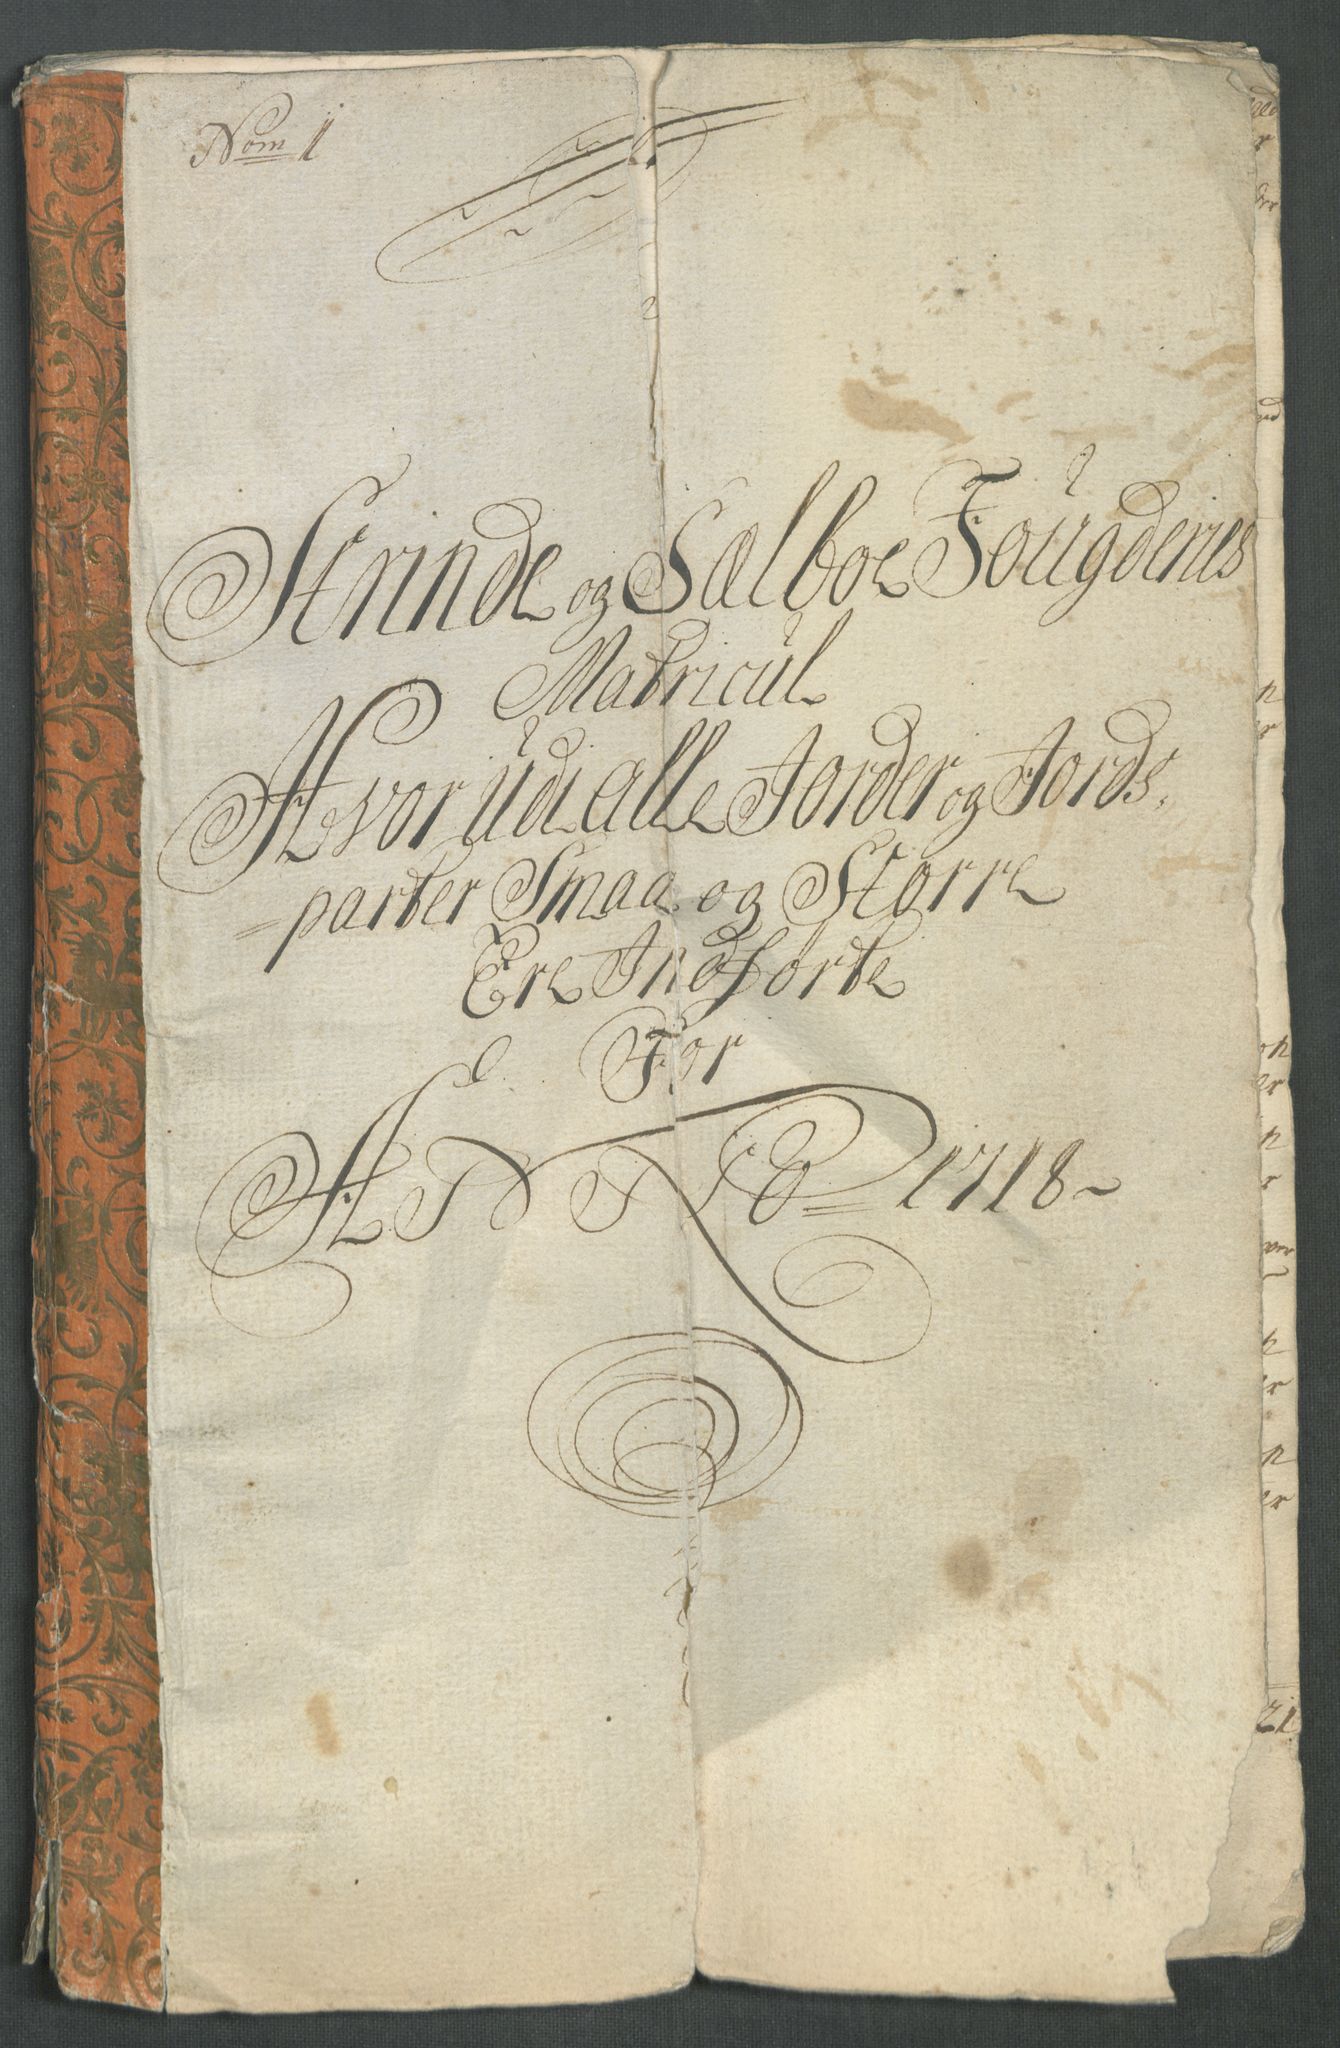 Nom 1
Strinde og Sælboe Fougderies
Matricul
Hvor Udi alle Jorder og Jords
=parter Smaa og Større
Ere Indførte
For
ANNO 1718
21